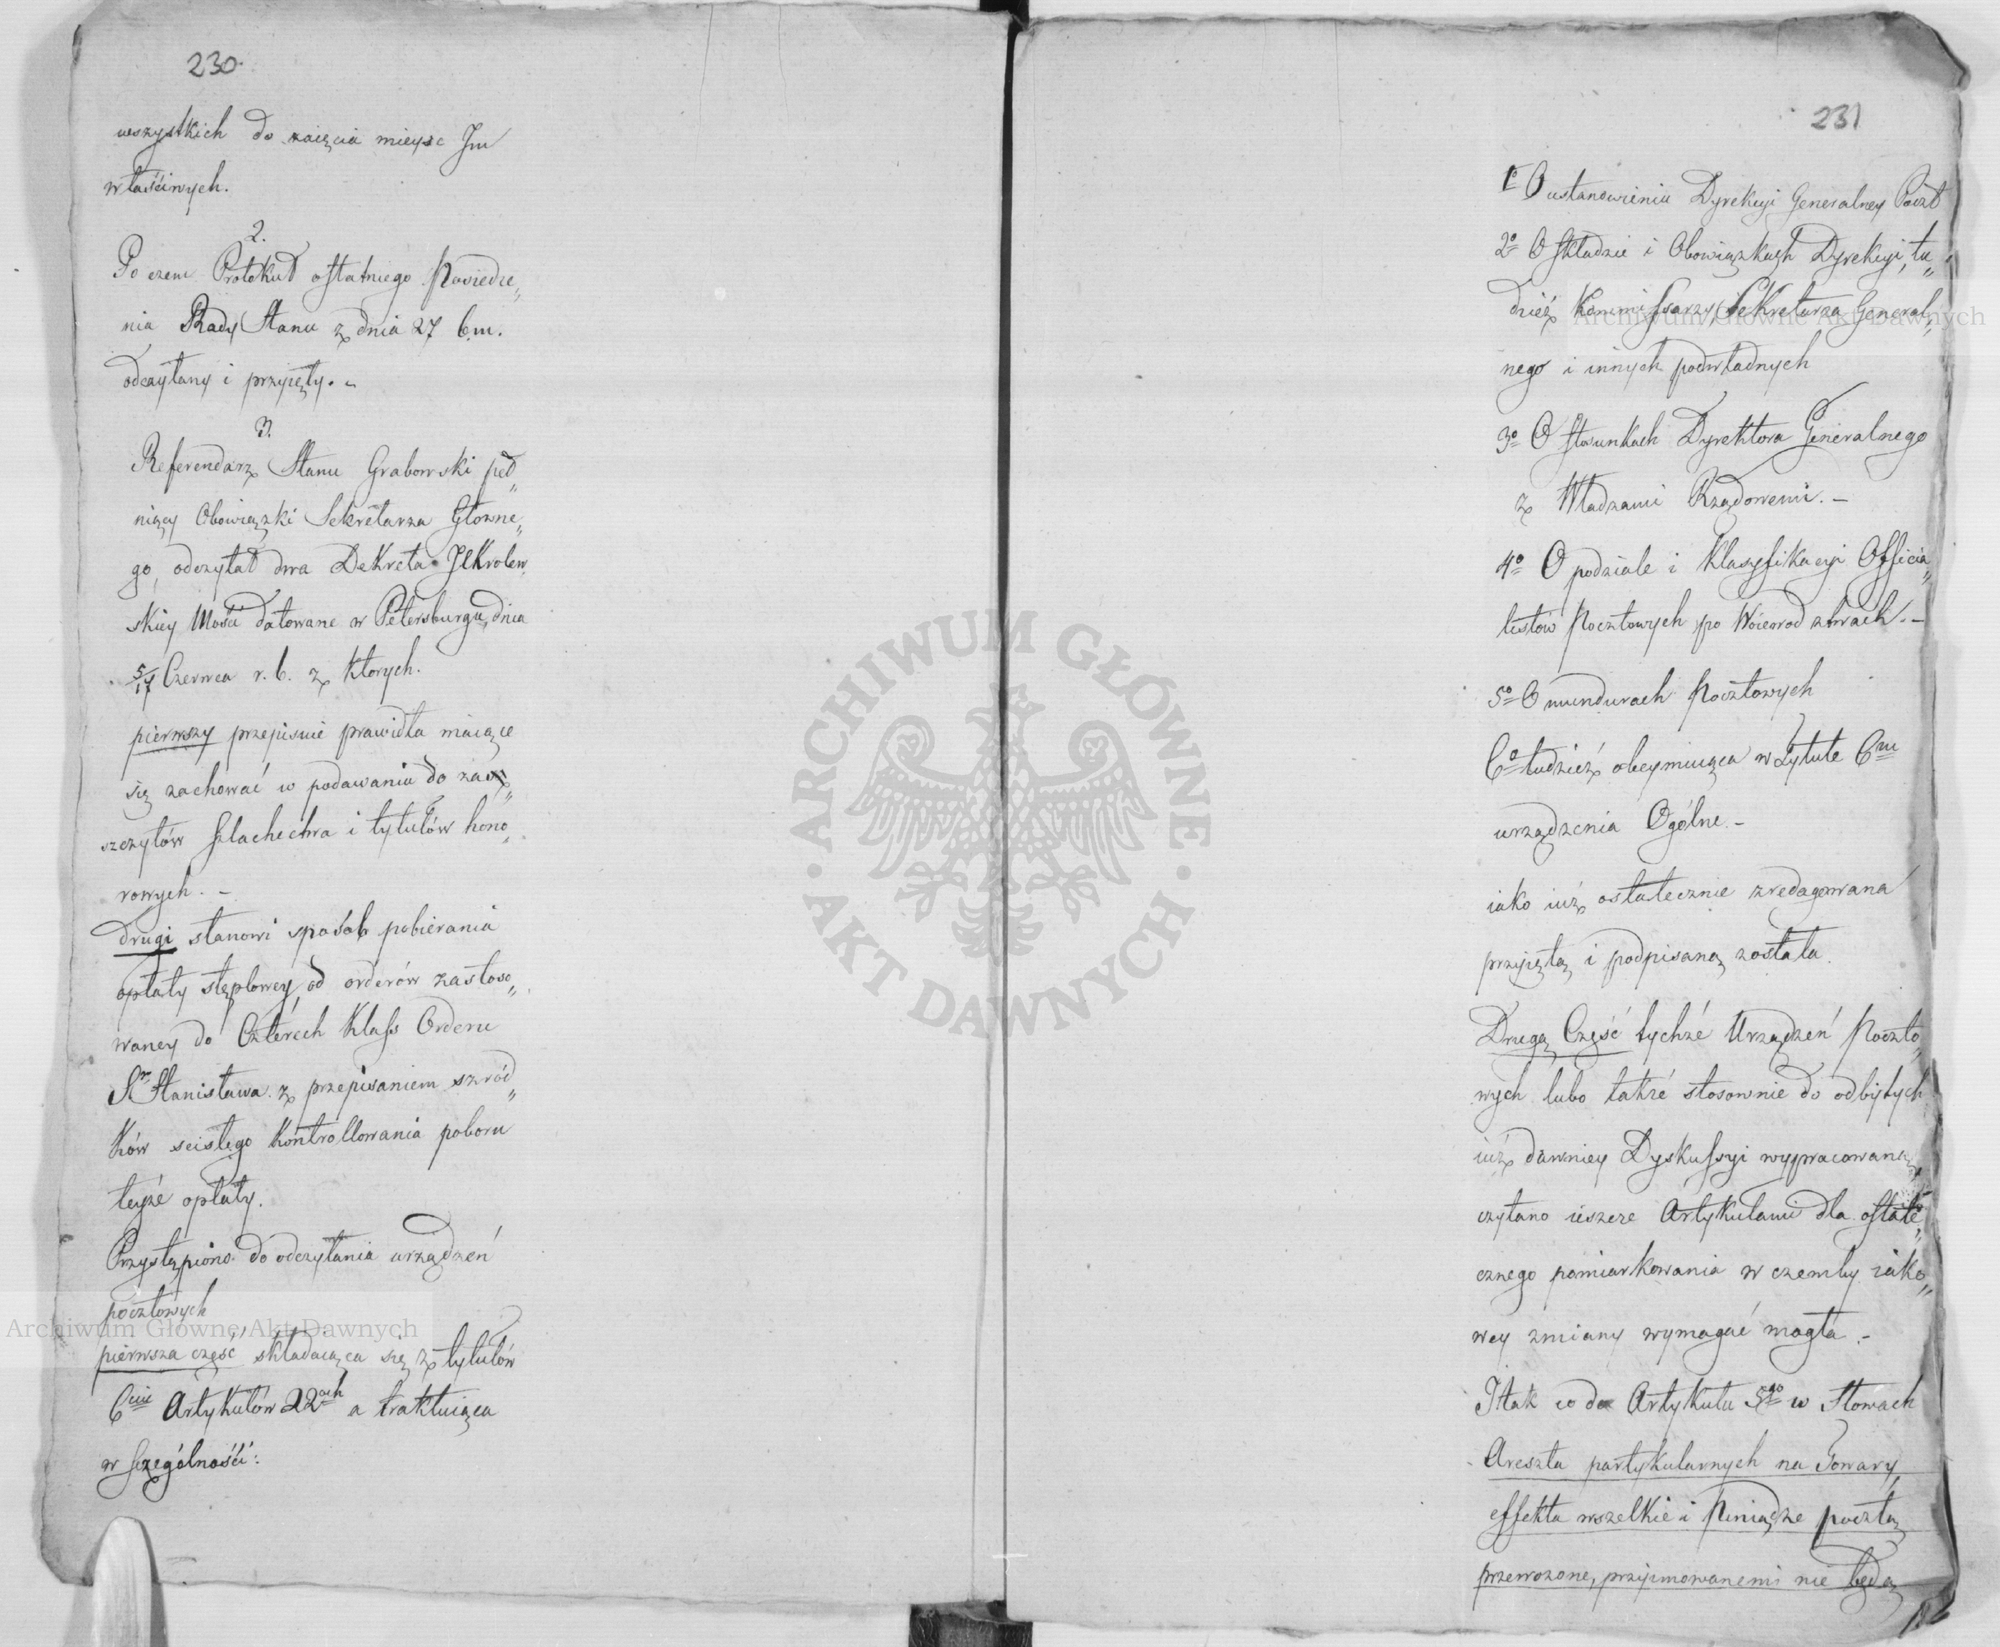 230.
wszystkich do zaięcia mieysc Im
właściwych.
2.
Po czem Protokuł ostatniego Posiedze„
nia Rady Stanu z dnia 27 b.m.
odczytany i przyięty. –
3.
Referendarz Stanu Grabowski peł„
niący Obowiązki Sekretarza Głowne„
go, odczytał dwa Dekreta JKrolew„
skiey Mości datowane w Petersburgu, dnia
5/17 Czerwca r. b. z ktorych.
pierwszy przepisuie prawidła maiące
się zachować w podawaniu do zas„
szczytów Szlachectwa i tytułów hono„
rowych. –
drugi stanowi sposób pobierania
opłaty stęplowey od orderów zastoso„
waney do Czterech Klass Orderu
Sgo Stanisława z przepisaniem szród„
ków scisłego kontrollowania poboru
teyże opłaty.
Przystąpiono do odczytania urządzeń
pocztowych
pierwsza część składaiąca się z tytułów
6ciu Artykułów 22ch a traktuiąca
w szczególności:
231
1o O ustanowieniu Dyrekcyi Generalney Poczt
2o O Składzie i Obowiązkach Dyrekcyi, tu„
dzież Kommissarzy, Sekretarza General„
nego i innych podwładnych
3o O Stosunkach Dyrektora Generalnego
z Władzami Rządowemi. –
4o O podziale i Klasyfikacyi Officia„
listów Pocztowych po Woiewodztwach. –
5o O mundurach Pocztowych
6o tudzież obeymuiąca w tytule 6m
urządzenia Ogólne –
iako iuż ostatecznie zredagowana
przyiętą i podpisaną została.
Drugą Część tychże Urządzeń Poczto„
wych lubo także stosownie do odbytych
iuż dawniey Dyskussyi wypracowaną,
czytano ieszcze Artykułami dla ostate„
cznego pomiarkowania w czemby iako„
wey zmiany wymagać mogła. –
I tak co do Artykułu 5go w Słowach
Areszta partykularnych na Towary,
effekta wszelkie i Pieniądze pocztą
przewożone, przyimowanemi nie będą
Archiwum Główne Akt Dawnych
Archiwum Główne Akt Dawnych
ARCHIWUM GŁÓWNE · AKT DAWNYCH ·